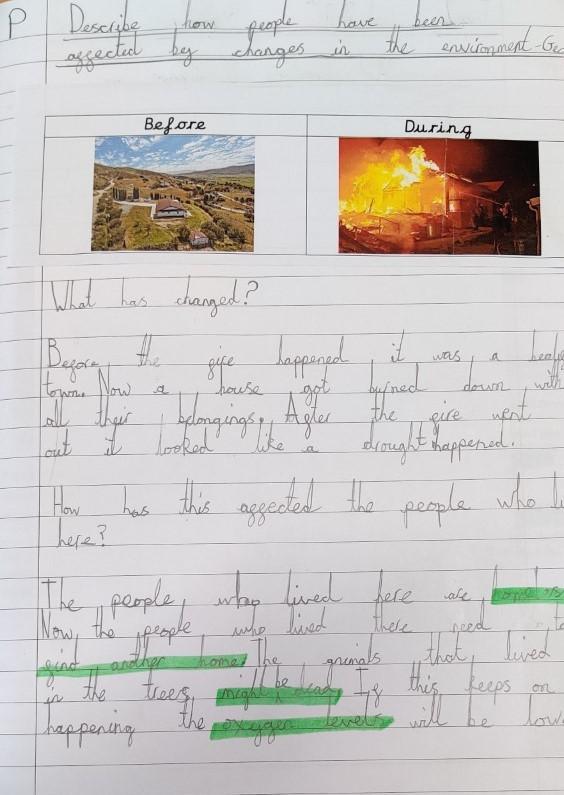 P
Describe how people have been
affected by changes in the environment-Geo
Before
During
What has changed?
Before, the fire happened, it was, a
town. Now a house got burned down, with
all their belongings. After the fire went
out it looked like a drought happened.
How has this affected the people who
here?
The people, who lived here are,
Now, the people who lived there need
find another home. The animals that, lived
in the trees, might be dead. If this keeps on
happening the oxygen levels will be